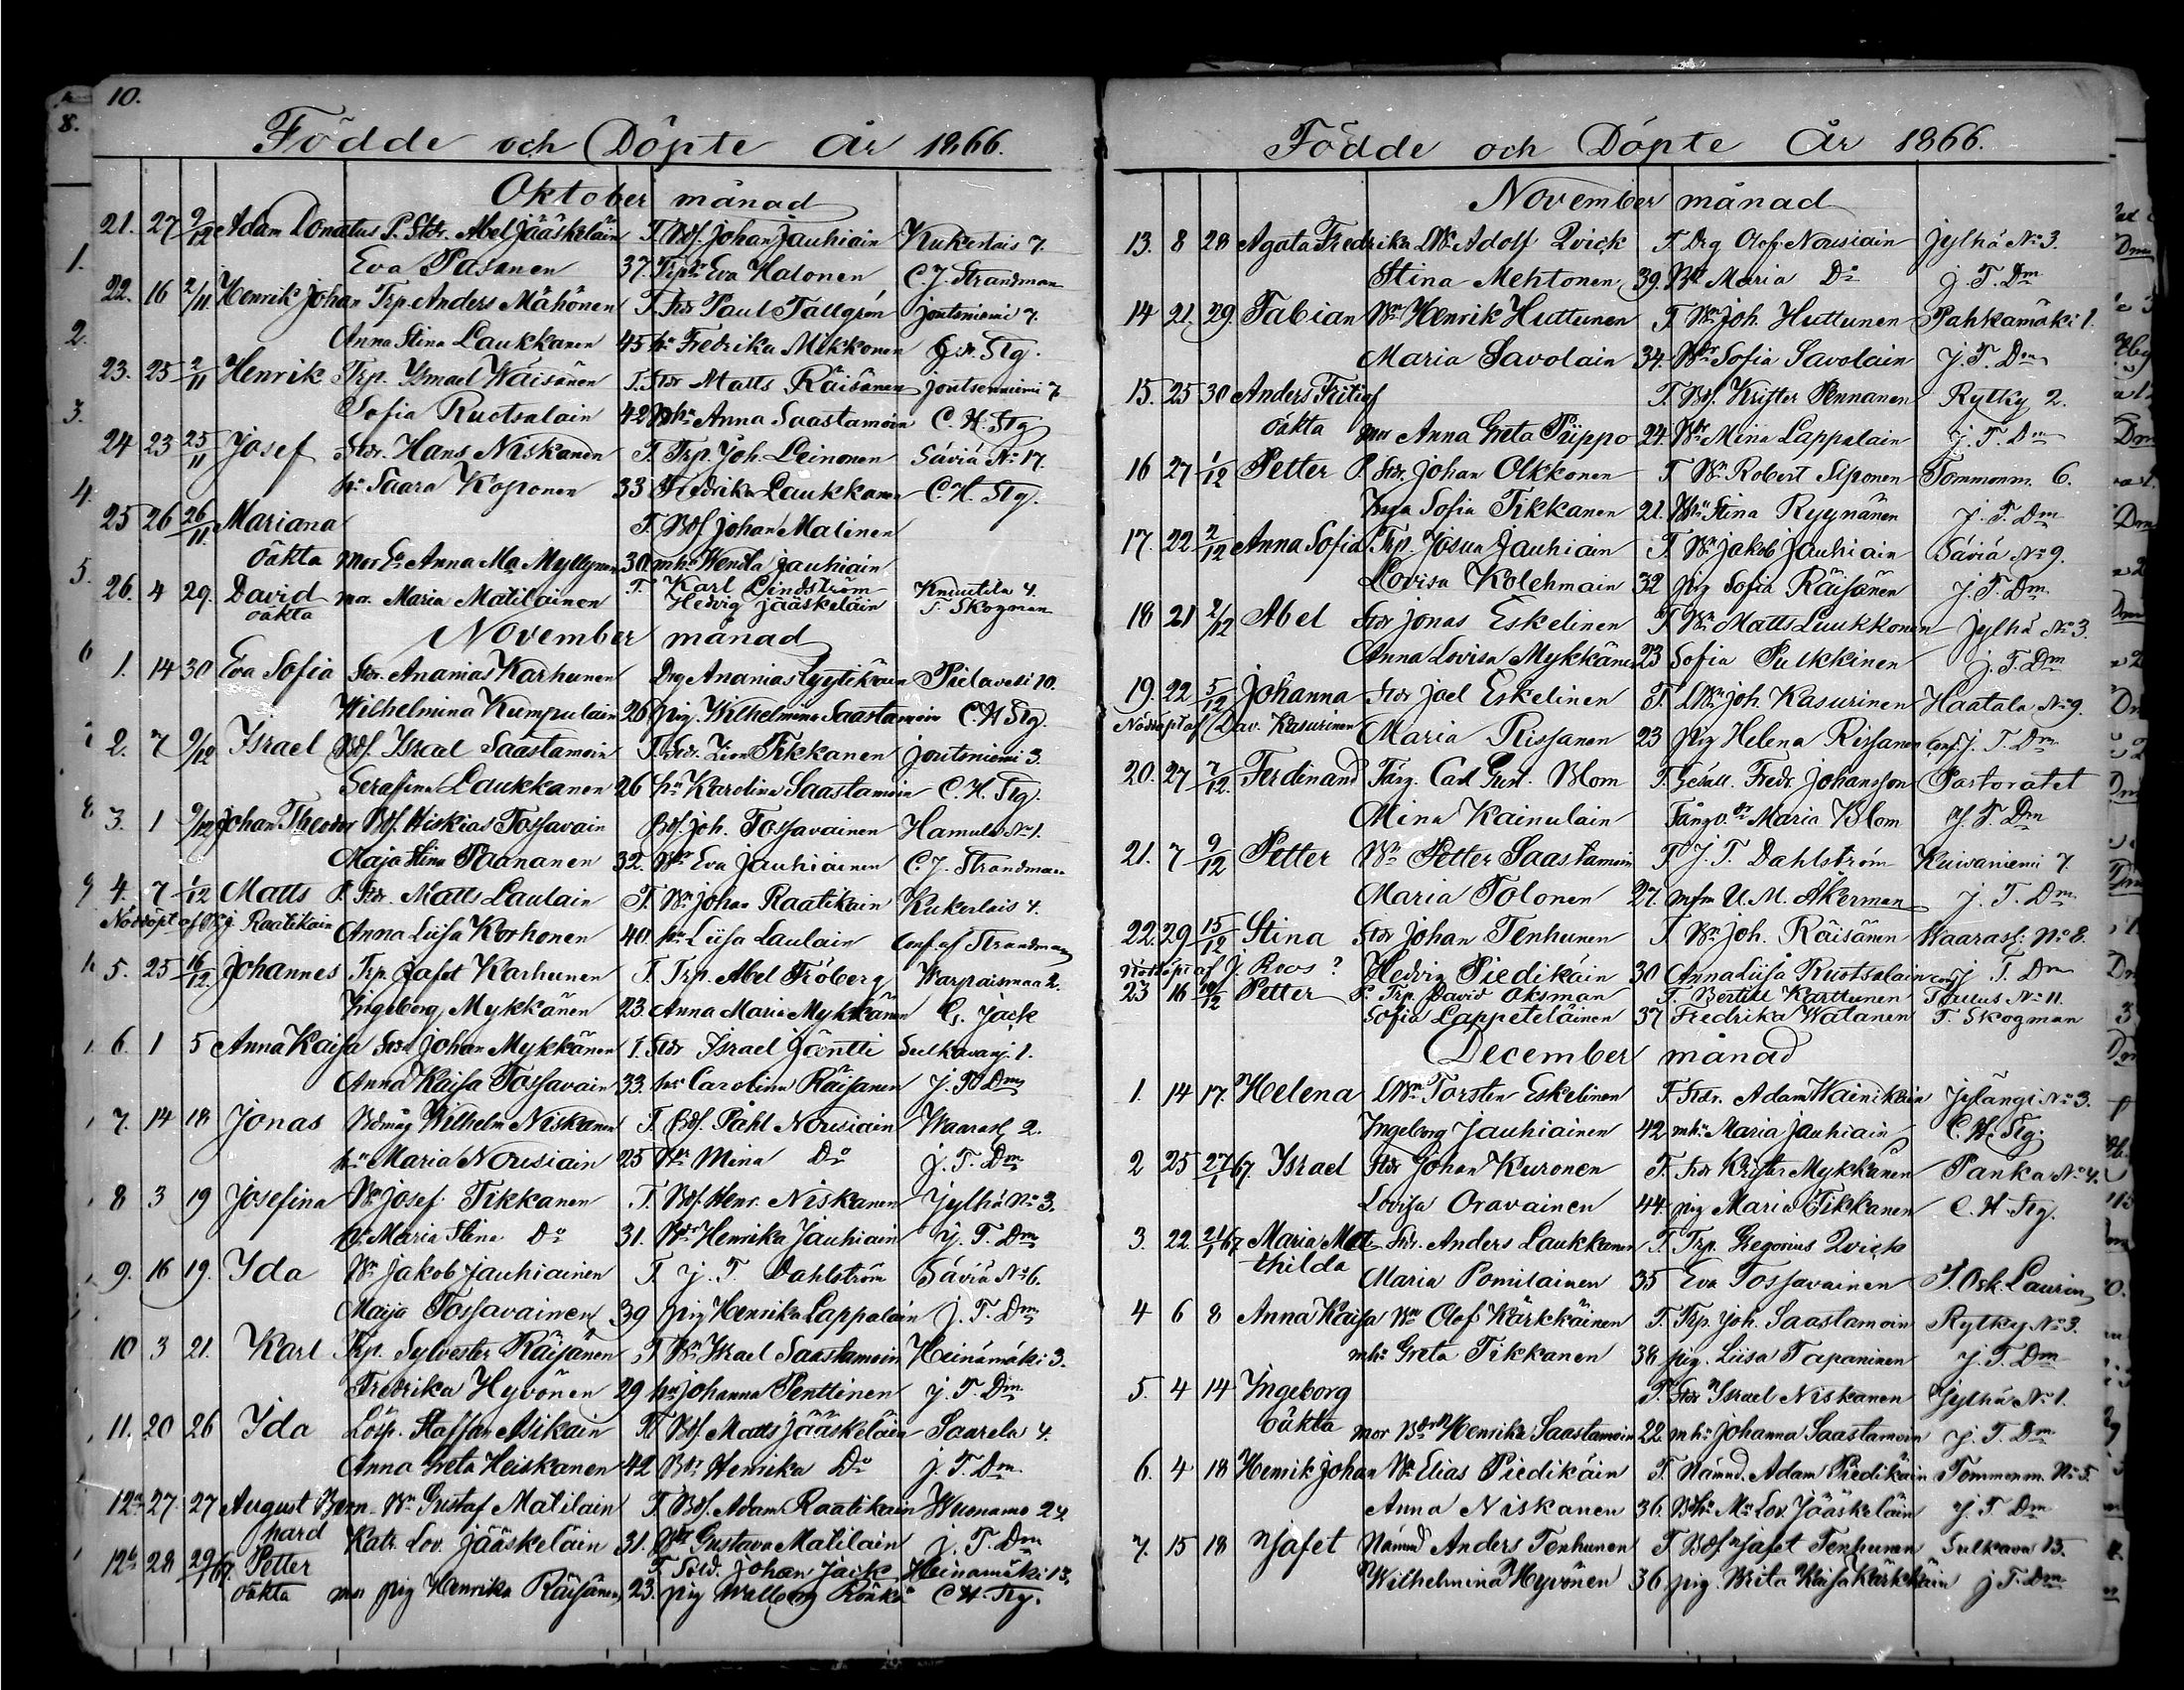 10.
Födde och Döpte År 1866.
Oktober månad
21. 27 9/12 Adam Donatus P. Stdr. Abel Jääskeläin T. Bdf. Johan Jauhiain Kukerlais 7.
Eva Pasanen 37. Eva Halonen C. J. Strandman
22. 16 2/11 Henrik Johan Trp. Anders Mähönen T. Stdr Paul Tallgrén Joutsniemi 7.
Anna Stina Laukkanen 45 hu Fredrika Mikkonen
23. 25 2/11 Henrik Trp. Ysmael Wäisänen T. Stdr Matts Räisänen Joutsenniemi 7
Sofia Ruotsalain 42 Anna Saastamoin C. H. Stg
24 23 25/11 Josef Stdr. Hans Niskanen T. Trp. Joh. Leinonen Säviä No 17.
hu Saara Koponen 33 Fredrika Laukkanen C. H. Stg.
25 26 26/11 Mariana T. Bdf Johan Malinen
oäkta Mor Anna Ma Myllynen 30 mhu Wendla Jauhiain
26. 4 29. David mor. Maria Matilainen T Karl Lindström Knuutila 4.
oäkta Hedvig Jääskeläin T Skogman
November månad
1. 14 30 Eva Sofia Stdr. Ananias Karhunen Drg Ananias Lyytikäin Pielavesi 10.
Wilhelmina Kumpulain 26 pig. Wilhelmina Saastamoin C. H Stg.
2. 7 9/12 Israel Bdf. Israel Saastamoin T. Stdr. Zion Tikkanen Joutsniemi 3.
Serafina Laukkanen 26 hu Karolina Saastamoin C. H. Stg.
3. 1 9/12 Johan Theodor Bdf. Hiskias Tossavain Bdf. Joh. Tossavainen Hamula No 1.
Maja Stina Paananen 32. Eva Jauhiainen C. J. Strandman
4. 7 1/12 Matts P. Stdr. Matts Laulain T. Bn Johan Raatikain Kukerlais 4.
Nöddöpt af J. Raatikain Anna Liisa Korhonen 40. hu Liisa Laulain Conf. af Strandman
5. 25 16/12 Johannes Trp. Jafet Karhunen T. Trp. Abel Fröberg Warpaismaa 2.
Yngeborg Mykkänen 23. Anna Maria Mykkänen G. Jack
6. 1 5 Anna Kaisa Stdr Johan Mykkänen T. Stdr Israel Jäntti Sulkavanj. 1.
Anna Kaisa Tossavain 33. hu Carolina Räisänen J. T. Dm
7. 14 18 Jonas Bdmåg Wilhelm Niskanen T. Bdf. Påhl Nousiain Waarasl. 2.
hu Maria Nousiain 25 Mina Do J. T. Dm
8 3 19 Josefina Bn Josef Tikkanen T. Bdf Henr. Niskanen Jylhä No 3.
Maria Stina Do 31. Henrika Jauhiain J. T. Dm
9. 16 19. Ida Bn Jakob Jauhiainen T J. T. Dahlström Säviä No 6.
Maija Tossavainen 39 pig Henrika Lappalain J. T. Dm
10 3 21. Karl Trp. Sylvester Räisänen T Bn Israel Saastamoin Heinämäki 3.
Fredrika Hyvönen 29 hu Johanna Penttinen J. T. Dm
11. 20 26 Ida Lösp. Staffan Asikain T Bdf. Matts Jääskeläin Saarela 4.
Anna Greta Heiskanen 42 Henrika Do J. T. Dm
12a 27. 27 August Bern- Bn Gustaf Matilain T. Bdf. Adam Raatikain Wuonamo 24
hard Katr. Lov. Jääskeläin 31. Gustava Matilain J. T. Dm
12b 28 29/1 67. Petter T Sold. Johan Jack Heinämäki 13.
oäkta mor pig Henrika Räisänen 23. pig Walborg Rönkä C H. Stg.
Födde och Döpte År 1866.
November månad
13. 8 28 Agata Fredrika LBn Adolf Qvick T. Drg Olof Nousiain Jylhä No 3.
Stina Mehtonen 39. Maria Do J. T. Dm
14 21. 29. Fabian Bn Henrik Huttunen T Bn Joh. Huttunen Pahkamäki 1.
Maria Savolain 34. Sofia Savolain J. T. Dm
15. 25 30 Anders Fritiof T. Bdf. Krister Pennanen Rytky 2.
oäkta mor Anna Greta Piippo 24. Mina Lappalain J. T. Dm
16 27 1/12 Petter P. Stdr. Johan Olkkonen T Bn Robert Siponen Tommonm. 6.
Sofia Tikkanen 21. Stina Ryynänen J. T. Dm
17. 22 2/12 Anna Sofia Trp. Josua Jauhiain T Bn Jakob Jauhiain Säviä No 9.
Lovisa Kolehmain 32 pig Sofia Räisänen J. T. Dm
18 21 2/12 Abel Stdr Jonas Eskelinen T Bn Matts Luukkonen Jylhä No 3.
Anna Lovisa Mykkänen 23 Sofia Pulkkinen J. T. Dm
19. 22 5/12 Johanna Stdr Joel Eskelinen T. LBn Joh. Kasurinen Haatala No 9.
Nöddöpt af Dav. Kasurinen Maria Rissanen 23 pig Helena Rissanen conf. J. T. Dm
20. 27 7/12. Ferdinand Färg. Carl Gust. Blom T. Gesäll. Fredr. Johansson Pastoratet
Mina Kainulain Maria Blom J. T. Dm
21. 7 9/12 Petter Bn Petter Saastamoin T J. T. Dahlström Kuivaniemi 7.
Maria Tolonen 27. mfm U. M. Åkerman J. T. Dm
22. 29 15/12 Stina Stdr Johan Tenhunen T Bn Joh. Räisänen Waarasl: No 8.
Nöddöpt af J. Roos? Hedvig Piedikäin 30 Anna Liisa Ruotsalain conf J. T. Dm
23 16 19/12 Petter P. Trp. David Oksman T. Bertill Karttunen Taulus No 11.
Sofia Lappeteläinen 37 Fredrika Watanen T. Skogman
December månad
1. 14 17. Helena LBn Torsten Eskelinen T. Stdr. Adam Wainikain Jylängi No 3.
Yngeborg Jauhiainen 42 mhu Maria Jauhiain C. H. Stg.
2 25 27/1 67. Israel Stdr Johan Kuronen T. Stdr Krister Mykkänen Panka No 4.
Lovisa Oravainen 44. pig Maria Tikkanen C. H Stg.
3. 22 21/1 67 Maria Mat- Stdr. Anders Laukkanen T. Trp. Gregorius Qvick
thilda Maria Pomilainen 35 Eva Tossavainen J. Osk. Laurin
4 6 8 Anna Kaisa Bn Olof Kärkkäinen T. Trp. Joh. Saastamoin Rytky No 3.
mhu Greta Tikkanen 38 pig. Liisa Tapaninen J. T. Dm
5. 4 14 Yngeborg T. Stdr Israel Niskanen Jylhä No 1.
oäkta mor Henrika Saastamoin 22. mhu Johanna Saastamoin J. T. Dm
6. 4 18 Henrik Johan Bn Elias Piedikäin T. Nämnd. Adam Piedikäin Tommonm. No 5.
Anna Niskanen 36. Ma Lov. Jääskeläin J. T. Dm
7. 15 18 Jafet Nämnd Anders Tenhunen T Bdf Jafet Tenhunen Sulkava 13.
Wilhelmina Hyvönen 36 pig. Brita Kaisa Kärkkäin J T. Dm